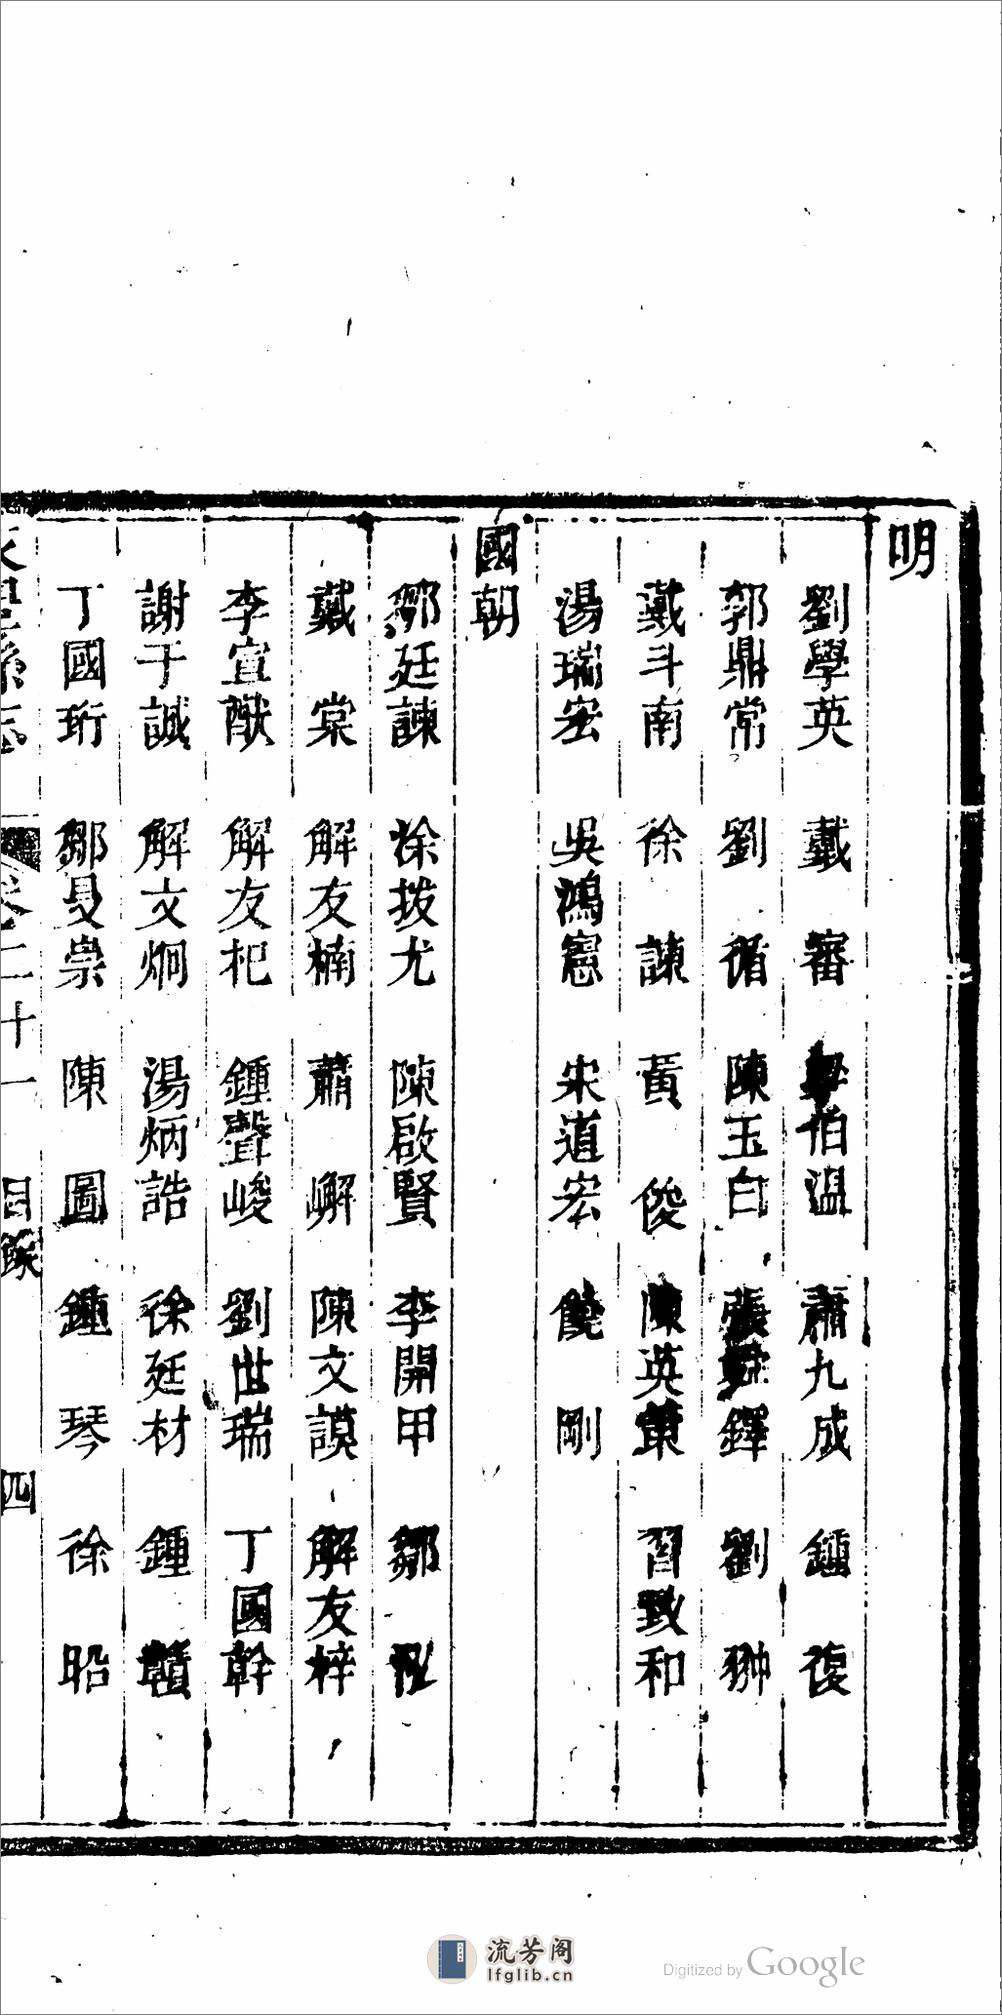 明
劉學英 戴審 伯温 蕭九成 鍾復
郭鼎常 劉循 陳玉白 張鐸 劉翀
戴斗南 徐諫 黃俊 陳英 習致和
湯瑞宏 吳鴻憲 宋道宏 饒剛
國朝
鄒廷諫 涂拔尤 陳啟賢 李開甲 鄒
戴棠 解友楠 蕭嶰 陳文謨 解友梓
李宣猷 解友杞 鍾聲峻 劉世瑞 丁國幹
謝于誠 解文炯 湯炳誥 徐廷材 鍾
丁國珩 鄒崇 陳圖 鍾琴 徐昭
縣志 卷二十一 目錄 四
流芳阁
lfglib.cn
Digitized by Google